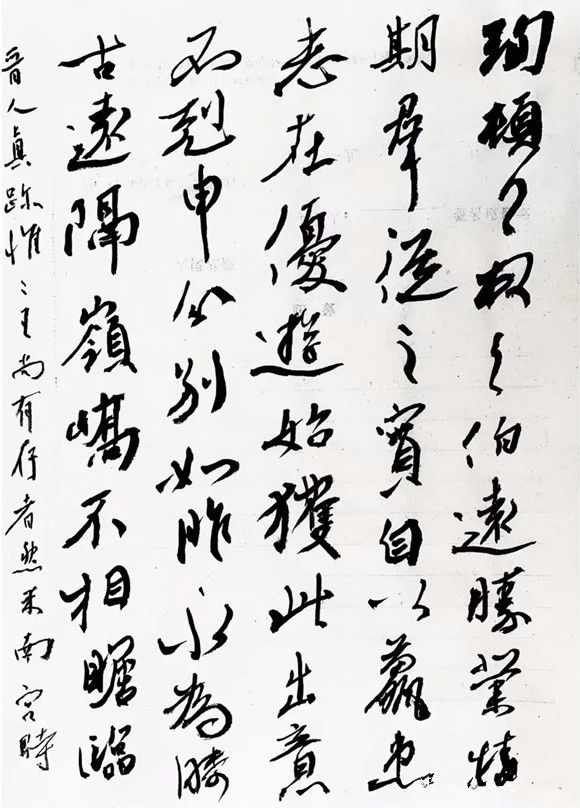 珣頓〻首〻伯遠勝業情
期羣從之寶自以羸患
志在優遊始獲此出意
不剋申分別如昨永為疇
古遠隔嶺嶠不相瞻臨
晉人真跡惟二王尚有存者然米南宮時